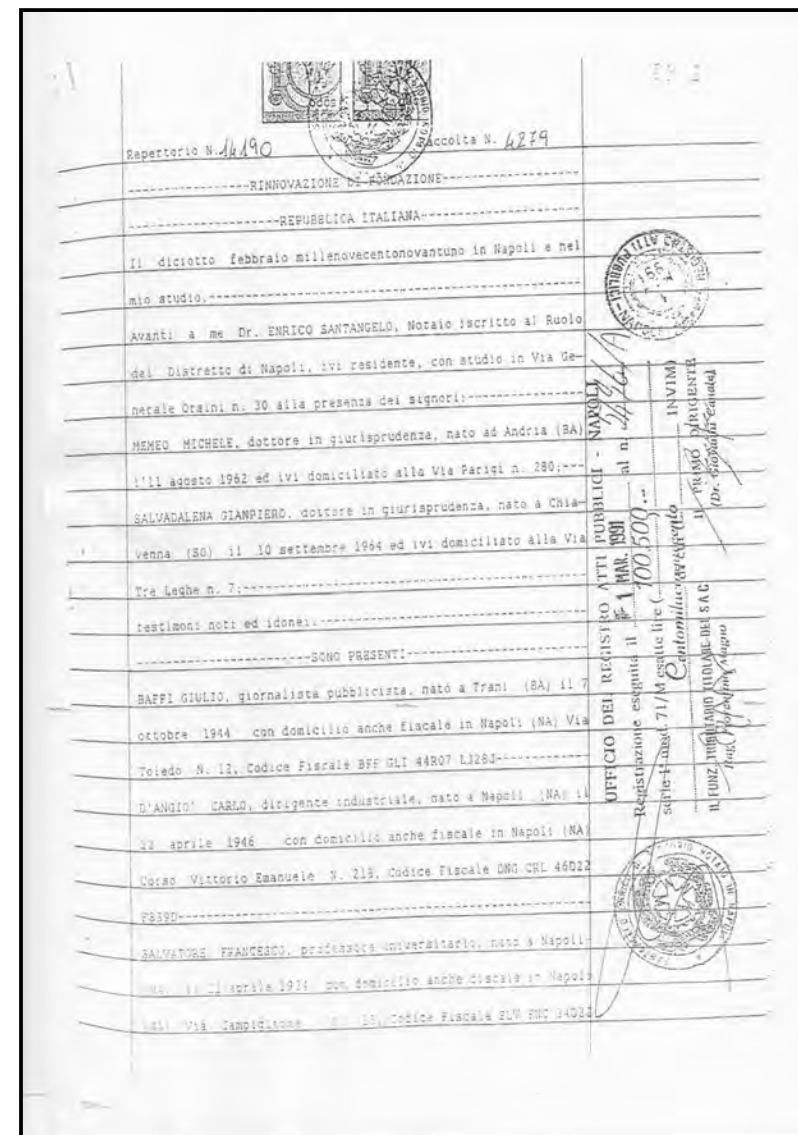 Repertorio N. 14190 Raccolta N. 4279
RINNOVAZIONE DI FONDAZIONE
REPUBBLICA ITALIANA
Il diciotto febbraio millenovecentonovantuno in Napoli e nel
mio studio.
Avanti a me Dr. ENRICO SANTANGELO, Notaio iscritto al Ruolo
del Distretto di Napoli, ivi residente, con studio in Via Ge-
nerale Orsini n. 30 alla presenza dei signori:
MEMEO MICHELE, dottore in giurisprudenza, nato ad Andria (BA)
l'11 agosto 1962 ed ivi domiciliato alla Via Parigi n. 280;
SALVADALENA GIANPIERO, dottore in giurisprudenza, nato a Chia-
venna (SO) il 10 settembre 1964 ed ivi domiciliato alla Via
Tre Leghe n. 7;
testimoni noti ed idonei.
SONO PRESENTI
BAFFI GIULIO, giornalista pubblicista, nato a Trani (BA) il 7
ottobre 1944 con domicilio anche fiscale in Napoli (NA) Via
Toledo N. 12, Codice Fiscale BFF GLI 44R07 L328J
D'ANGIO' CARLO, dirigente industriale, nato a Napoli (NA) il
22 aprile 1946 con domicilio anche fiscale in Napoli (NA)
Corso Vittorio Emanuele N. 219, Codice Fiscale DNG CRL 46D22
F839D
SALVATORE FRANCESCO, professore universitario, nato a Napoli
aprile 1934 con domicilio anche fiscale in Napoli
Via Campiglione Codice Fiscale SLV FNC 34D23
UFFICIO DEL REGISTRO ATTI PUBBLICI - NAPOLI
Registrazione eseguita il 1 MAR. 1991 al n.
serie 1ª mod. 71/M esatte lire 100.500
Centomilacinquecento INVIM
IL FUNZ. TRIBUTARIO TITOLARE DEL SAC
Rag. Fiorentino Magno
IL PRIMO DIRIGENTE
(Dr. Giovanni Canala)